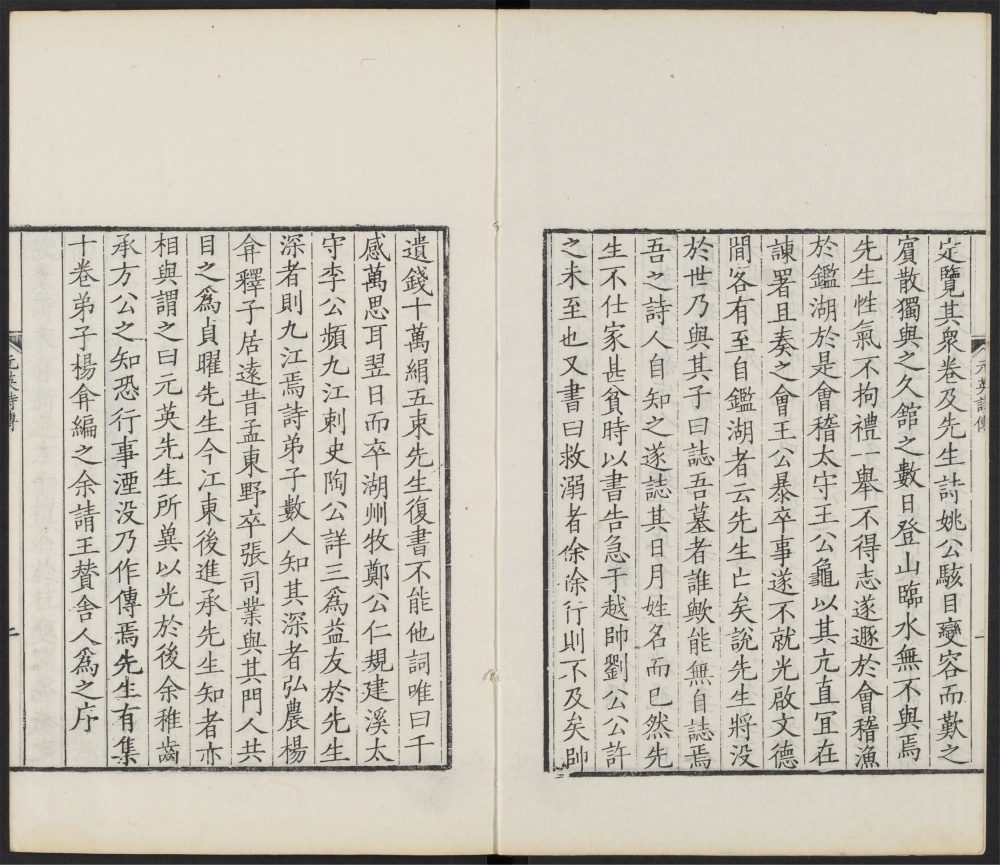 定覽其衆卷及先生詩姚公駭目變容而歎之
賓散獨與之久舘之數日登山臨水無不與焉
先生性氣不拘禮一舉不得志遂遯於會稽漁
於鑑湖於是會稽太守王公龜以其亢直冝在
諫署且奏之會王公暴卒事遂不就光啟文德
間各有至自鑑湖者云先生亡矣說先生將没
於世乃與其子曰誌吾墓者誰歟能無自誌焉
吾之詩人自知之遂誌其日月姓名而已然先
生不仕家甚貧時以書告急于越帥劉公公許
之未至也又書曰救溺者徐徐行則不及矣帥
元英詩傳
一
遺錢十萬絹五束先生復書不能他詞唯曰千
感萬思耳翌日而卒湖州牧鄭公仁規建溪太
守李公頻九江刺史陶公詳三爲益友於先生
深者則九江焉詩弟子數人知其深者弘農楊
弇釋子居遠昔孟東野卒張司業與其門人共
目之爲貞曜先生今江東後進承先生知者亦
相與謂之曰元英先生所兾以光於後余稚齒
承方公之知恐行事湮没乃作傳焉先生有集
十卷弟子楊弇編之余請王賛舍人爲之序
元英詩傳
二